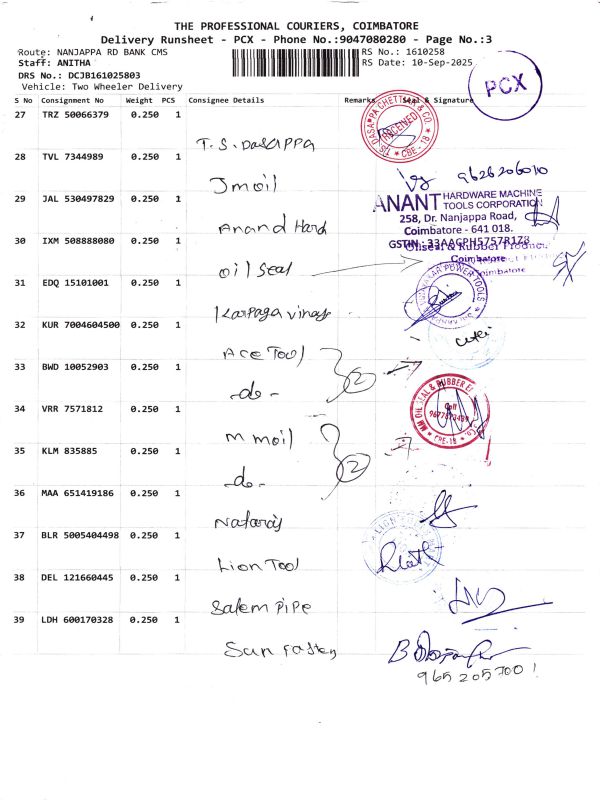 THE PROFESSIONAL COURIERS, COIMBATORE
Delivery Runsheet - PCX - Phone No.:9047080280 - Page No.:3
Route: NANJAPPA RD BANK CMS
RS No.: 1610258
Staff: ANITHA
RS Date: 10-Sep-2025
DRS No.: DCJB161025803
Vehicle: Two Wheeler Delivery
PCX
S No Consignment No Weight PCS Consignee Details Remarks Seal & Signature
27 TRZ 50066379 0.250 1
T.S.DASAPPA
TS. DASAPPA CHETTIAR & CO.
RECEIVED
CBE - 18
28 TVL 7344989 0.250 1
Jmoil
9626206010
29 JAL 530497829 0.250 1
Anand Hard
ANANT HARDWARE MACHINE
TOOLS CORPORATION
258, Dr. Nanjappa Road,
Coimbatore - 641 018.
GSTIN : 33AACPH5757R1Z8
30 IXM 508888080 0.250 1
oil seal
Oilseal & Rubber Products
Coimbatore
31 EDQ 15101001 0.250 1
Karpaga vinay
POWER TOOLS
32 KUR 7004604500 1 0.250 1
Ace Tool
33 BWD 10052903 0.250 1
-do-
2
34 VRR 7571812 0.250 1
m moil
MM OIL SEAL & RUBBER
Cell
CBE-18
35 KLM 835885 0.250 1
-do-
2
36 MAA 651419186 0.250 1
Nataraj
37 BLR 5005404498 0.250 1
Lion Tool
LION
38 DEL 121660445 0.250 1
Salem Pipe
39 LDH 600170328 0.250 1
Sun Fasten
965 205 7001